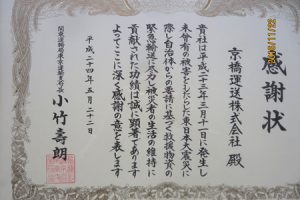 感謝状
京橋運送株式会社 殿
貴社は平成二十三年三月十一日に発生し
未曾有の被害をもたらした東日本大震災に
際し自治体からの要請に基づく救援物資の
緊急輸送に尽力し被災者の生活の維持に
貢献された功績は誠に顕著であります
よってここに深く感謝の意を表します
平成二十四年五月二十二日
関東運輸局東京運輸支局長
小竹壽朗